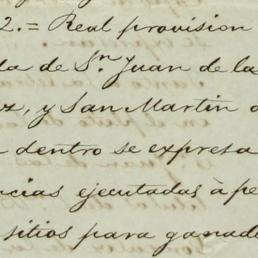 2.= Real provision
da de Sn. Juan de la
z, y San Martin
dentro se expresa
ncias ejecutadas à pe
sitios para ganad